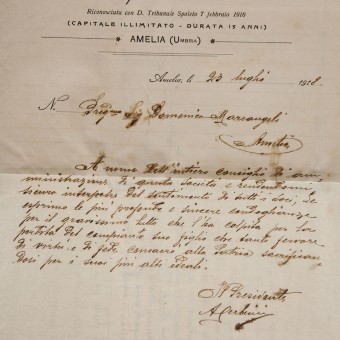 Riconosciuta con D. Tribunale Spoleto 7 febbraio 1916
(CAPITALE ILLIMITATO - DURATA 15 ANNI)
AMELIA (UMBRIA)
Amelia, li 23 luglio 1918.
N.
Pregmo Sig Domenico Marcangeli
Amelia
A nome dell'intiero consiglio di am
ministrazione di questa società e rendendomi
sicuro interprete del sentimento di tutti i soci, Le
esprimo le più profonde e sincere condoglianze
per il gravissimo lutto che l'ha colpita per la
perdita del compianto suo figlio che tanto fervore
di virtù e di fede consacrò alla Patria sacrifican
dosi per i suoi più alti ideali.
Il Presidente
A